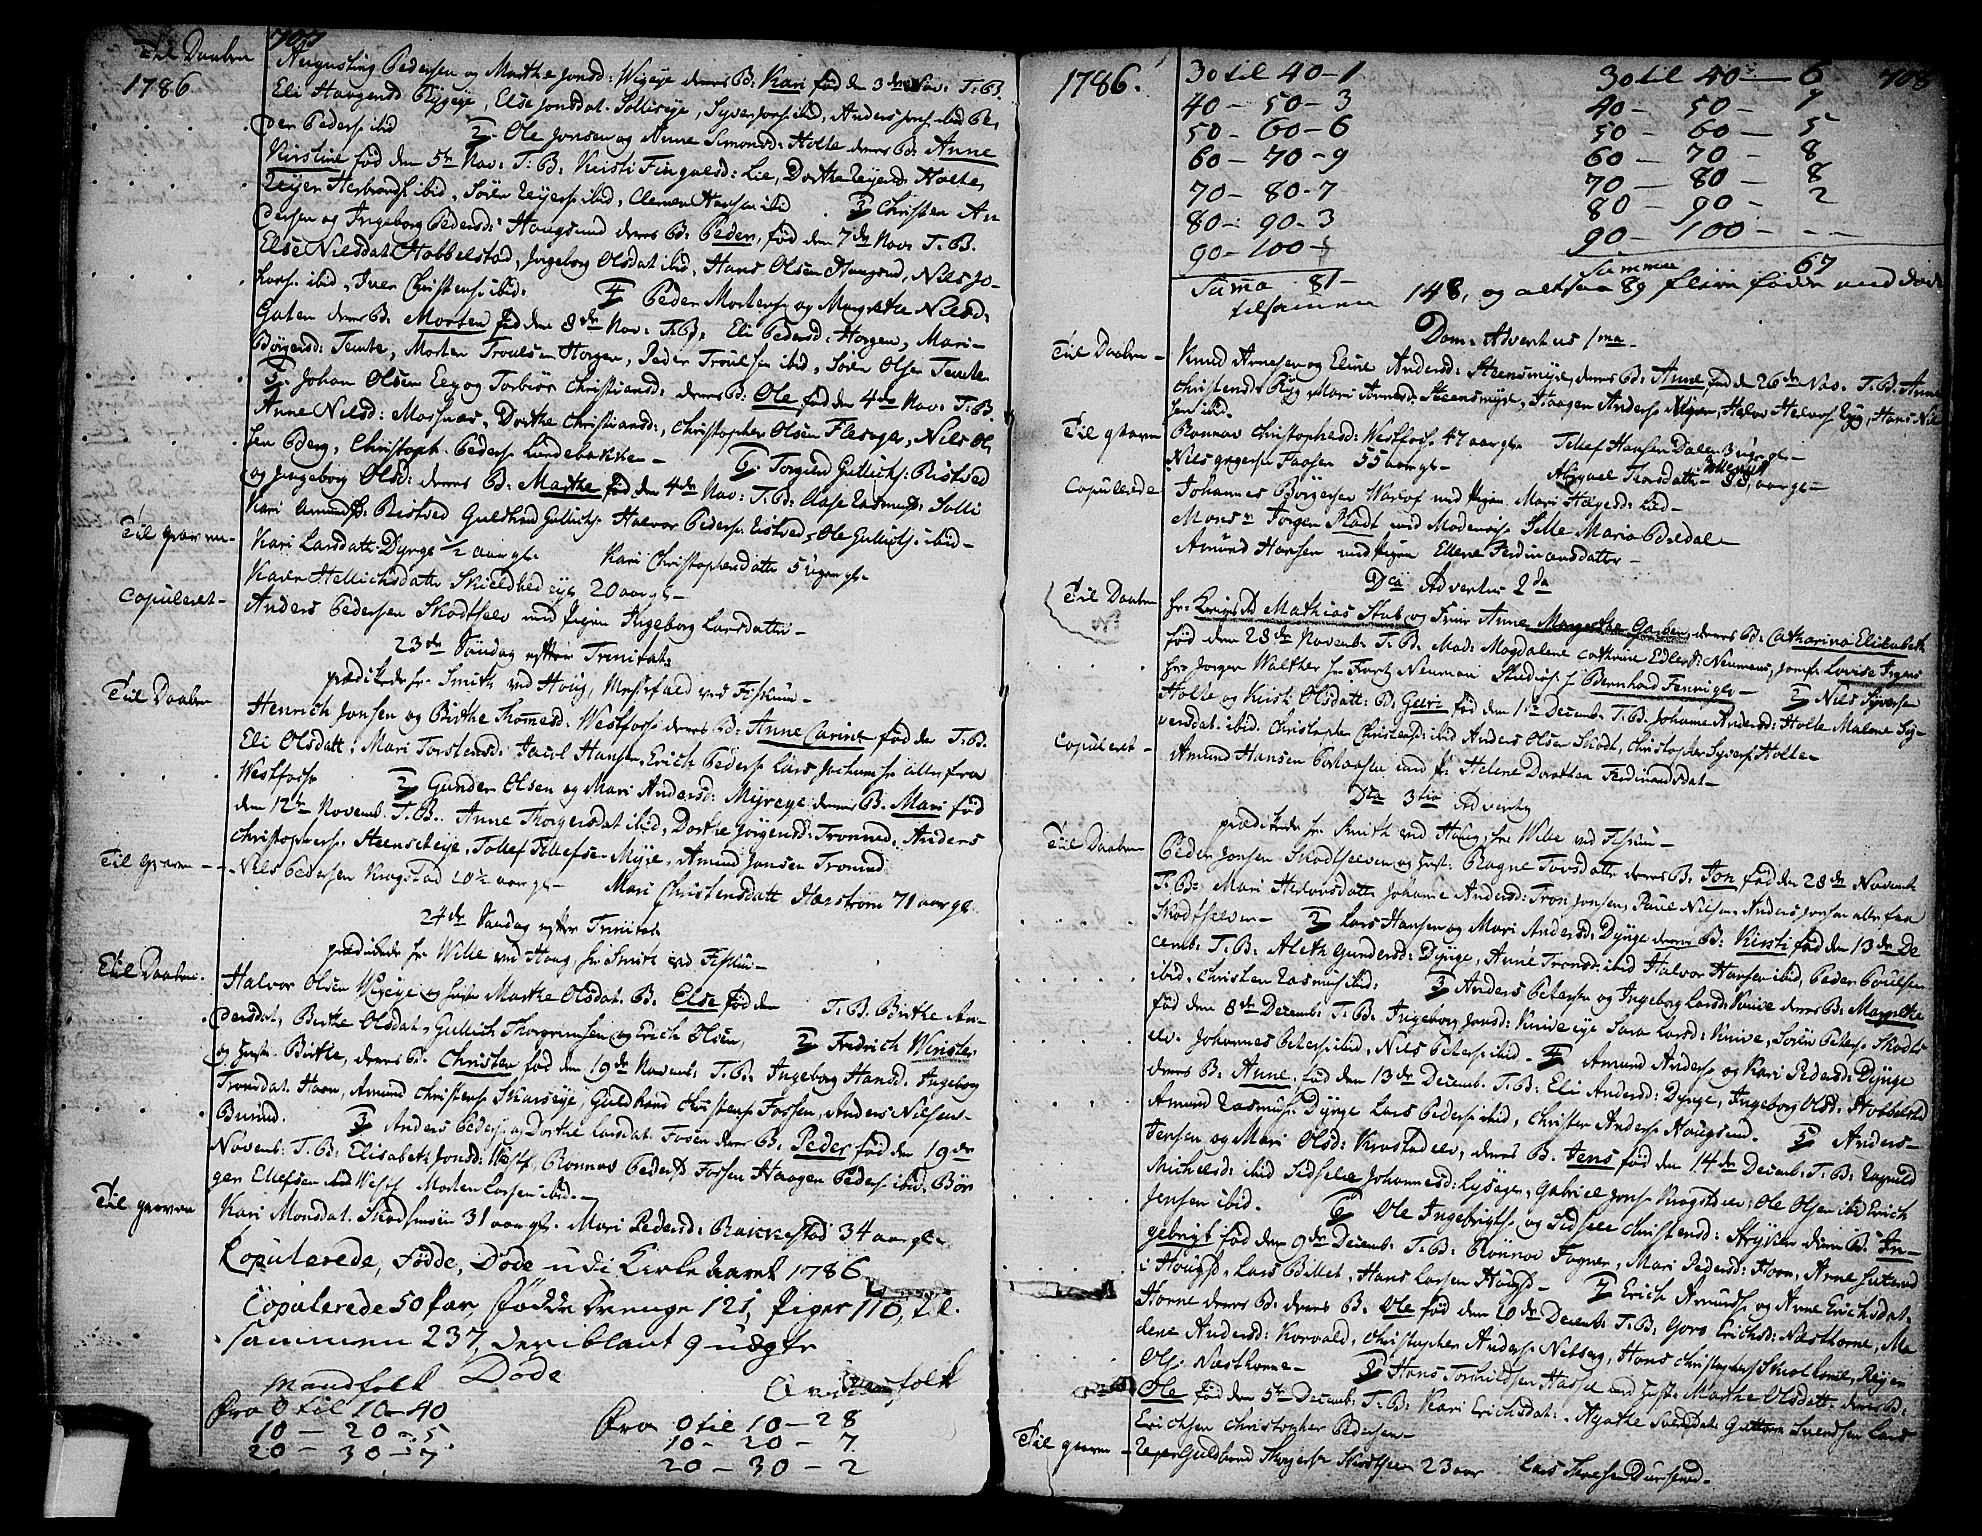 707
Til Daaben
1786
Augustinus Pedersen og Marthe Jonsd: Wigeye deres B: Kari fød den 3de Nov: T.B.
Eli Haagensd Byggeye, Else Jonsdat. Sollieeye, Syver Jons. ibid, Anders Jons. ibid Pe,
der Peders. ibid 2, Ole Jonsen og Anne Simonsd: Holte deres B: Anne
Kirstine fød den 5te Nov: T. B. Kirsti Fingalsd: Lie, Dorthe Reyersd Holte,
Reyer Herbrands. ibid, Sören Reyers. ibid, Clemen Hansen ibid 3 Christen An
dersen og Ingeborg Pedersd: Haugsund deres B: Peder, fød den 7de Nov: T. B.
Else Nielsdat Hobbelstad, Ingeborg Olsdat ibid, Hans Olsen Haugsund, Niels Jo-
hans. ibid, Iver Christens. ibid. 4 Peder Mortens. og Margrethe Nielsd:
Gaten deres B: Morten fød den 8de Nov: T.B. Eli Pedersd: Horgen, Mari-
Börgersd: Temte, Morten Troulsen Horgen, Peder Troulsen ibid, Sören Olsen Temte
5. Johan Olsen Eeg og Torbiör Christiansd: deres B: Ole fød den 4de Nov: T.B.
Anne Nilsd: Mosnæs, Dorthe Christiansd:, Christopher Olsen Flesager, Niels Ol,
sen Berg, Christoph. Peders. Lindebakke- 6. Torgier Gullichs: Bilstad
og Ingeborg Olsd: deres B: Marthe fød den 4de Nov: T.B: Aase Rasmusd: Solli
Kari Amundsd: Bilstad Guldbrand Gullichs. Halvor Peders. Enstad, Ole Gullichs ibid-
Til graven- Kari Larsdatt: Dynge 1/2 aar gl. Kari Christophersdatt 5 ugen gl.
Karen Hellichsdatt Skieldbedeye 20 aar gl-
Copuleret- Anders Pedersen Skodtselv med Pigen Ingeborg Larsdatter-
23de Søndag efter Trinitat:
prædikede hr. Smith ved Houg, Messefald ved Fiskum-
Til Daaben Henrich Jonsen og Birthe Thomesd: Westfoss. deres B: Anne Carine fød den T.B.
Eli Olsdatt. Mari Torstensd: Jacob Hansen, Erich Peders. Lars Jochums. alle fra
Westfoss. 2 Gunder Olsen og Mari Andersd: Myreeye deres B: Mari fød
den 12te Novemb. T.B. Anne Thorgersdat ibid, Dorthe Jörgensd: Tronrud, Anders
Christophers. Steenseeye, Tollef Tollefsen Myre, Amund Jonsen Tronrud
Til Graven- Nils Pedersen Kragstad 20 1/2 aar gl- Mari Christensdatt Hærstrøm 71 aar gl.
24de Søndag efter Trinitat
prædikede hr Wille ved Houg, hr: Smith ved Fiskum-
Til Daaben. Halvor Olsen Wigeye og hustr Marthe Olsdat. B. Else fød den T.B. Birthe An-
dersdat, Birthe Olsdat, Gullich Thorgrimsen og Erich Olsen, 2 Fredrich Winsler
og hustr. Birthe, deres B: Christen fød den 19de Novemb. T.B. Ingeborg Hansd. Ingeborg
Tronsdat. Hoen, Amund Christens. Skarseye, Guldbrand Christens. Fossen, Anders Nilsen-
Burud. 3 Anders Peders. og Dorthe Larsdat. Fosen deres B: Peder fød den 19de
Novemb: T.B: Elisabeth Jonsd: Westf. Rönnov Pedersd Fossen Haagen Peders. ibid. Bör
ger Ellefsen Westf. Morten Larsen ibid.-
Til graven Kari Monsdat. Skodsmoen 31 aar gl. Mari Pedersd: Bakkestad 34 aar gl.-
Copulerede, Födde, Döde udi Kirke Aaret 1786
Copulerede 50 par, Födde Drenge 121, Piger 116, til
sammen 237, deriblant 9 uægte
Döde
Mandfolk Qvindfolk
Fra 0 til 10-40 Fra 0 til 10-28
10-20-5 10-20-7
20-30-7 20-30-2
1786. 708
30 til 40-1 30 til 40-6
40-50-3 40-50-7
50-60-6 50-60-5
60-70-9 60-70-8
70-80-7 70-80-8
80-90-3 80-90-2
90-100- 90-100---
Suma 81- Summa 67
tilsamen 148, og altsaa 89 fleire födde end döde
Dom: Adventus 1ma
Til Daaben- Knud Arnesen og Eline Andersd: Steensmyr, deres B: Anne fød den 26de Nov: T.B. Anne
Christensd: Ryg, Mari Arnesd. Steensmyr, Haagen Anders. Myr, Helvor Helvors. Ryg, Hans Nil
sen ibid.
Til graven Rönnov Christophersd: Westfoss 47 aar gl. Tollef Hansen Dalen 3 ugen gl-
Nils Fossen 55 aar gl- Abigael Thorsdatt- 88 aar gl-
Copulerede Johannes Börgersen Warlof med pigen Mari Helgesd: Lied-
Monsr Jörgen Radt med Modemois: Sille Maria Bredal-
Amund Hansen med Pigen Ellene Ferdinansdatter-
Dca Adventus 2da
Til Daaben Hr: Mathias Stub og Frue Anne Margrethe Garben, deres B: Catharina Elisabeth
fød den 28de Novemb: T.B. Mad: Magdalene Cathrine Edlersd: Neumans, Jomf: Lovise
hr Jörgen Walther hr Neuman Studios: hr Bernhard - 2 Nils Syversen
Holte og Kirsti Olsdatt: B: Guri fød den 1te Decemb. T.B. Johanne Andersd: Holte Malene Sy-
versdat ibid. Christopher Christens. ibid Anders Olsen Skodt, Christopher Syvers. Holte-
Copuleret- Amund Hansen med Helene Dorothea Ferdinandsdat-
Dca 3tia Adventus
prædikede hr Smith ved Houg, hr Wille ved Fiskum-
Til Daaben Peder Jonsen Skodtselven og hust: Ragne Torsdatt: deres B: Jon fød den 28de Novemb.
T.B: Mari Helvorsdatt: Johanne Andersd: Tron Jonsen, Paul Nilsen Anders Jonsen alle fra
Skodtselven- 2 Lars Hansen og Mari Andersd: Dynge deres B. Kirsti fød den 13de De
cemb: T.B: Aleth Gundersd: Dynge, Anne Tronsd: ibid Halvor Hansen ibid, Peder Poulsen
ibid, Christen Rasmus. ibid: 3 Anders Peters. og Ingeborg Larsd: Knive deres B: Margrethe
fød den 8de Decemb: T.B: Ingeborg Jonsd: Kniveeye Sara Larsd: Knive, Sören Peters. Skodts
elv. Johannes Peters. ibid, Nils Peters. ibid. 4 Amund Anders. og Kari Pedersd: Dynge
deres B. Anne fød den 13de Decemb. T.B: Eli Andersd: Dynge, Ingeborg Olsd: Hobbelstad
Amund Rasmus. Dynge Lars Peders. ibid, Christen Anders. Haugsund. 5 Anders-
Jensen og Mari Olsd: Krostadelv, deres B. Jens fød den 14de Decemb. T.B: Ragnild
Michelsd: ibid Sidsele Johannesd: Lysager, Gabriel Jons. Kragstad, Ole Olsen ibid Erich
Jensen ibid. 6 Ole Ingebrigts. og Sidsele Christensd: Stryken deres B: In-
gebrigt fød den 9de Decemb. T.B: Rönnov Fagner, Mari Pedersd: Hoen, Arne
i Hougsd, Lars Billet, Hans Larsen Hougsd- 7 Erich Amunds. og Anne Erichsdat.
Horne deres B. deres B. Ole fød den 20de Decemb: T.B: Goro Erichsd: Næsthorne, Ma
dene Andersd: Korvald, Christopher Anders. Neberg, Hans Christophers. Reyer
Ols. Næsthorne- 8 Hans Torkildsen Hassel med hust: Marthe Olsdatt. deres B:
Ole fød den 5te Decemb: T.B: Kari Erichsdat:. Agathe Svendsdat: Guttorm Svendsen Lars
Erichsen Christopher Pedersen-
Til graven- Guldbrand Thorgers. 23 aar Lars Thoresen